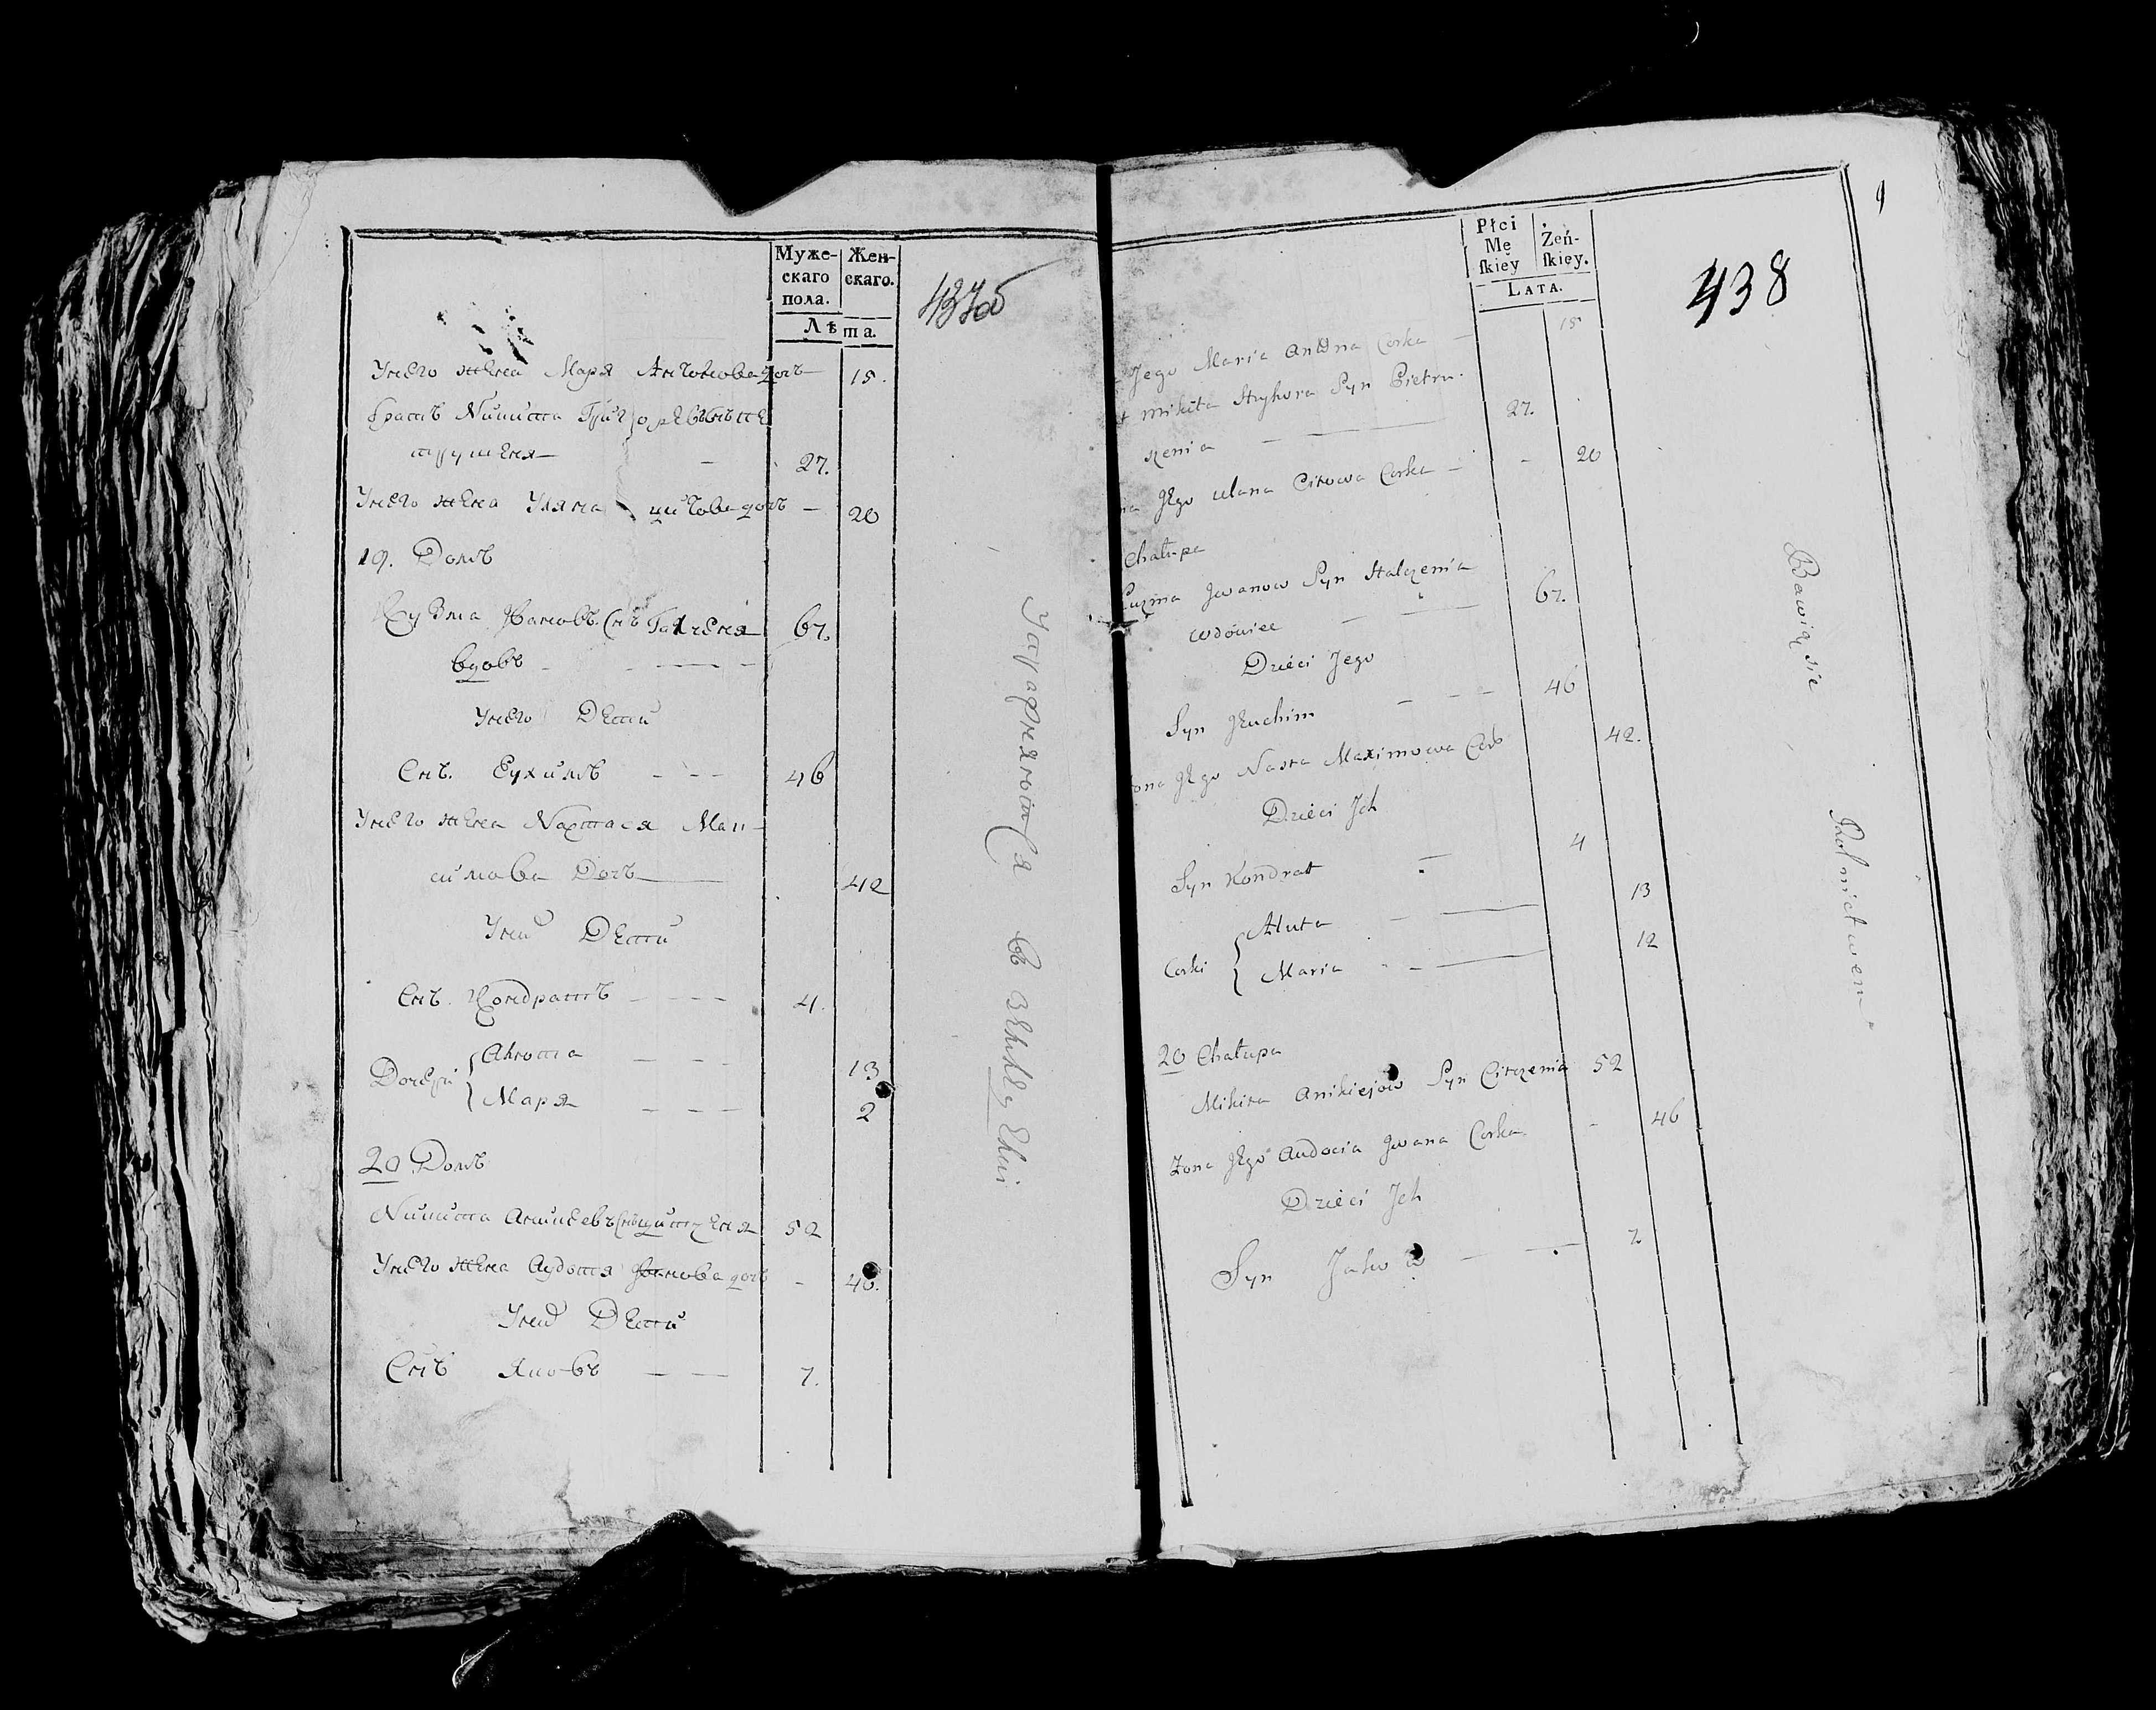 Муже-
скаго
пола.
Жен-
скаго.
Лѣта.
437об
Унего жена Маря Антонова дочь 15.
братъ Микита Григоревъ снъ пе
трученя — 27.
Унего жена Уляна цитова дочь — 20
19. Домъ
Кузма Ивановъ Снъ Галченя 67.
вдовъ — — —
Унего Дети
Снъ. Еухимъ — — 46
Унего жена Настася Мак-
симова Дочь 42
Уних Дети
Снъ. Кондратъ — — — 4.
Дочери Анюта — — 13
Маря — — — 2
20 Домъ
Микита Аникеевъ Снъ цитченя 52
Унего жена Аудотя Иванова дочь — 46.
Уних Дети
Снъ Яковъ — — 7.
Płci
Mę
ſkiey
Żeń-
ſkiey.
LATA.
438
9
Jego Maria Antona Corka — 15
Mikita Hryhora Syn Pietru.
czenia — 27.
Jego Ulana Citowa Corka — - 20
Chałupa
Kuzma Jwanow Syn Halczenia 67.
wdowiec — —
Dzieci Jego
Syn Jeuchim — — — 46
żona Jego Nasta Maximowa Cor 42.
Dzieci Jch
Syn Kondrat — 4
Corki Anuta — — 13
Maria - — 12
20 Chałupa
Mikita Anikiejow Syn Citczenia 52
Żona Jego Audocia Jwana Corka - 46
Dzieci Jch
Syn Jakow — — 7
Bawią się Rolnictwem